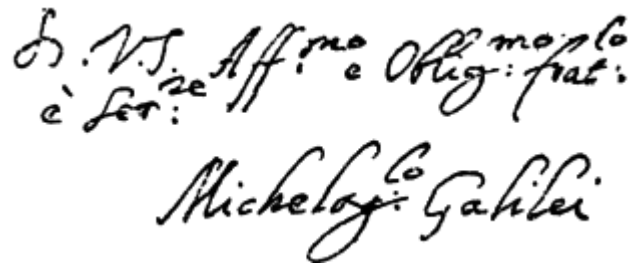 D. V.S. Aff.mo e Oblig:mo frat:lo
è ser:re
Michelag:lo Galilei